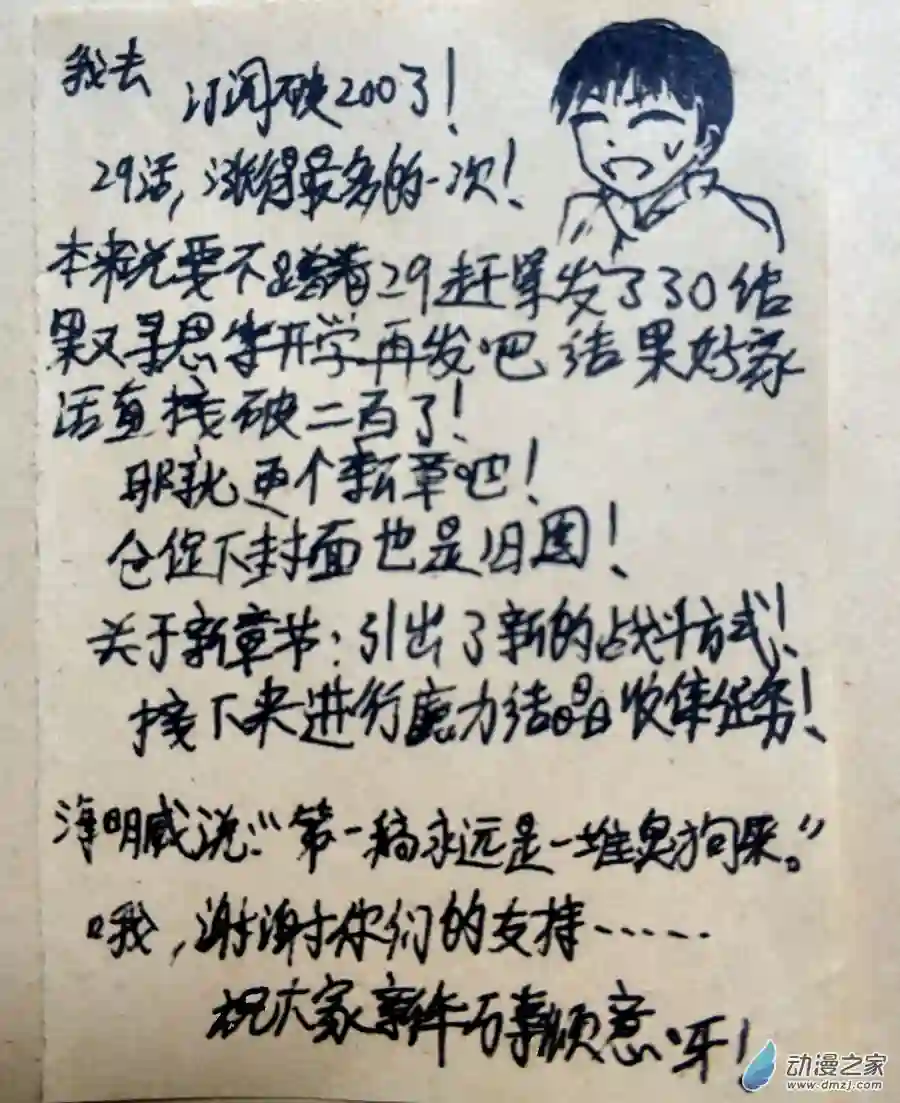 我去
订阅破200了!
29话,涨得最多的一次!
本来说要不蹭着29赶紧发了30结
果又寻思等开学再发吧 结果好家
活直接破二百了!
那就更个新章吧!
仓促下封面也是旧图!
关于新章节:引出了新的战斗方式!
接下来进行魔力结晶收集任务!
海明威说:“第一稿永远是一堆臭狗屎。”
哦,谢谢你们的支持……
祝大家新年万事顺意呀!
动漫之家
www.dmzj.com